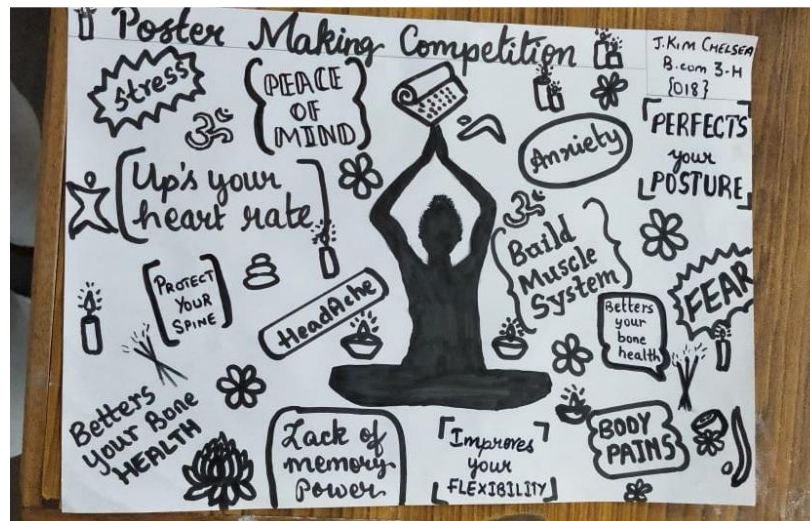 Poster Making Competition
J. KIM CHELSEA
B.com 3-H
{018}
Stress
PEACE
OF
MIND
ॐ
Anxiety
PERFECTS
your
POSTURE
Up's your
heart rate
ॐ
Build
Muscle
System
PROTECT
YOUR
SPINE
HeadAche
Betters
your
bone
health
FEAR
Betters
your Bone
HEALTH
Lack of
memory
Power
Improves
your
FLEXIBILITY
BODY
PAINS